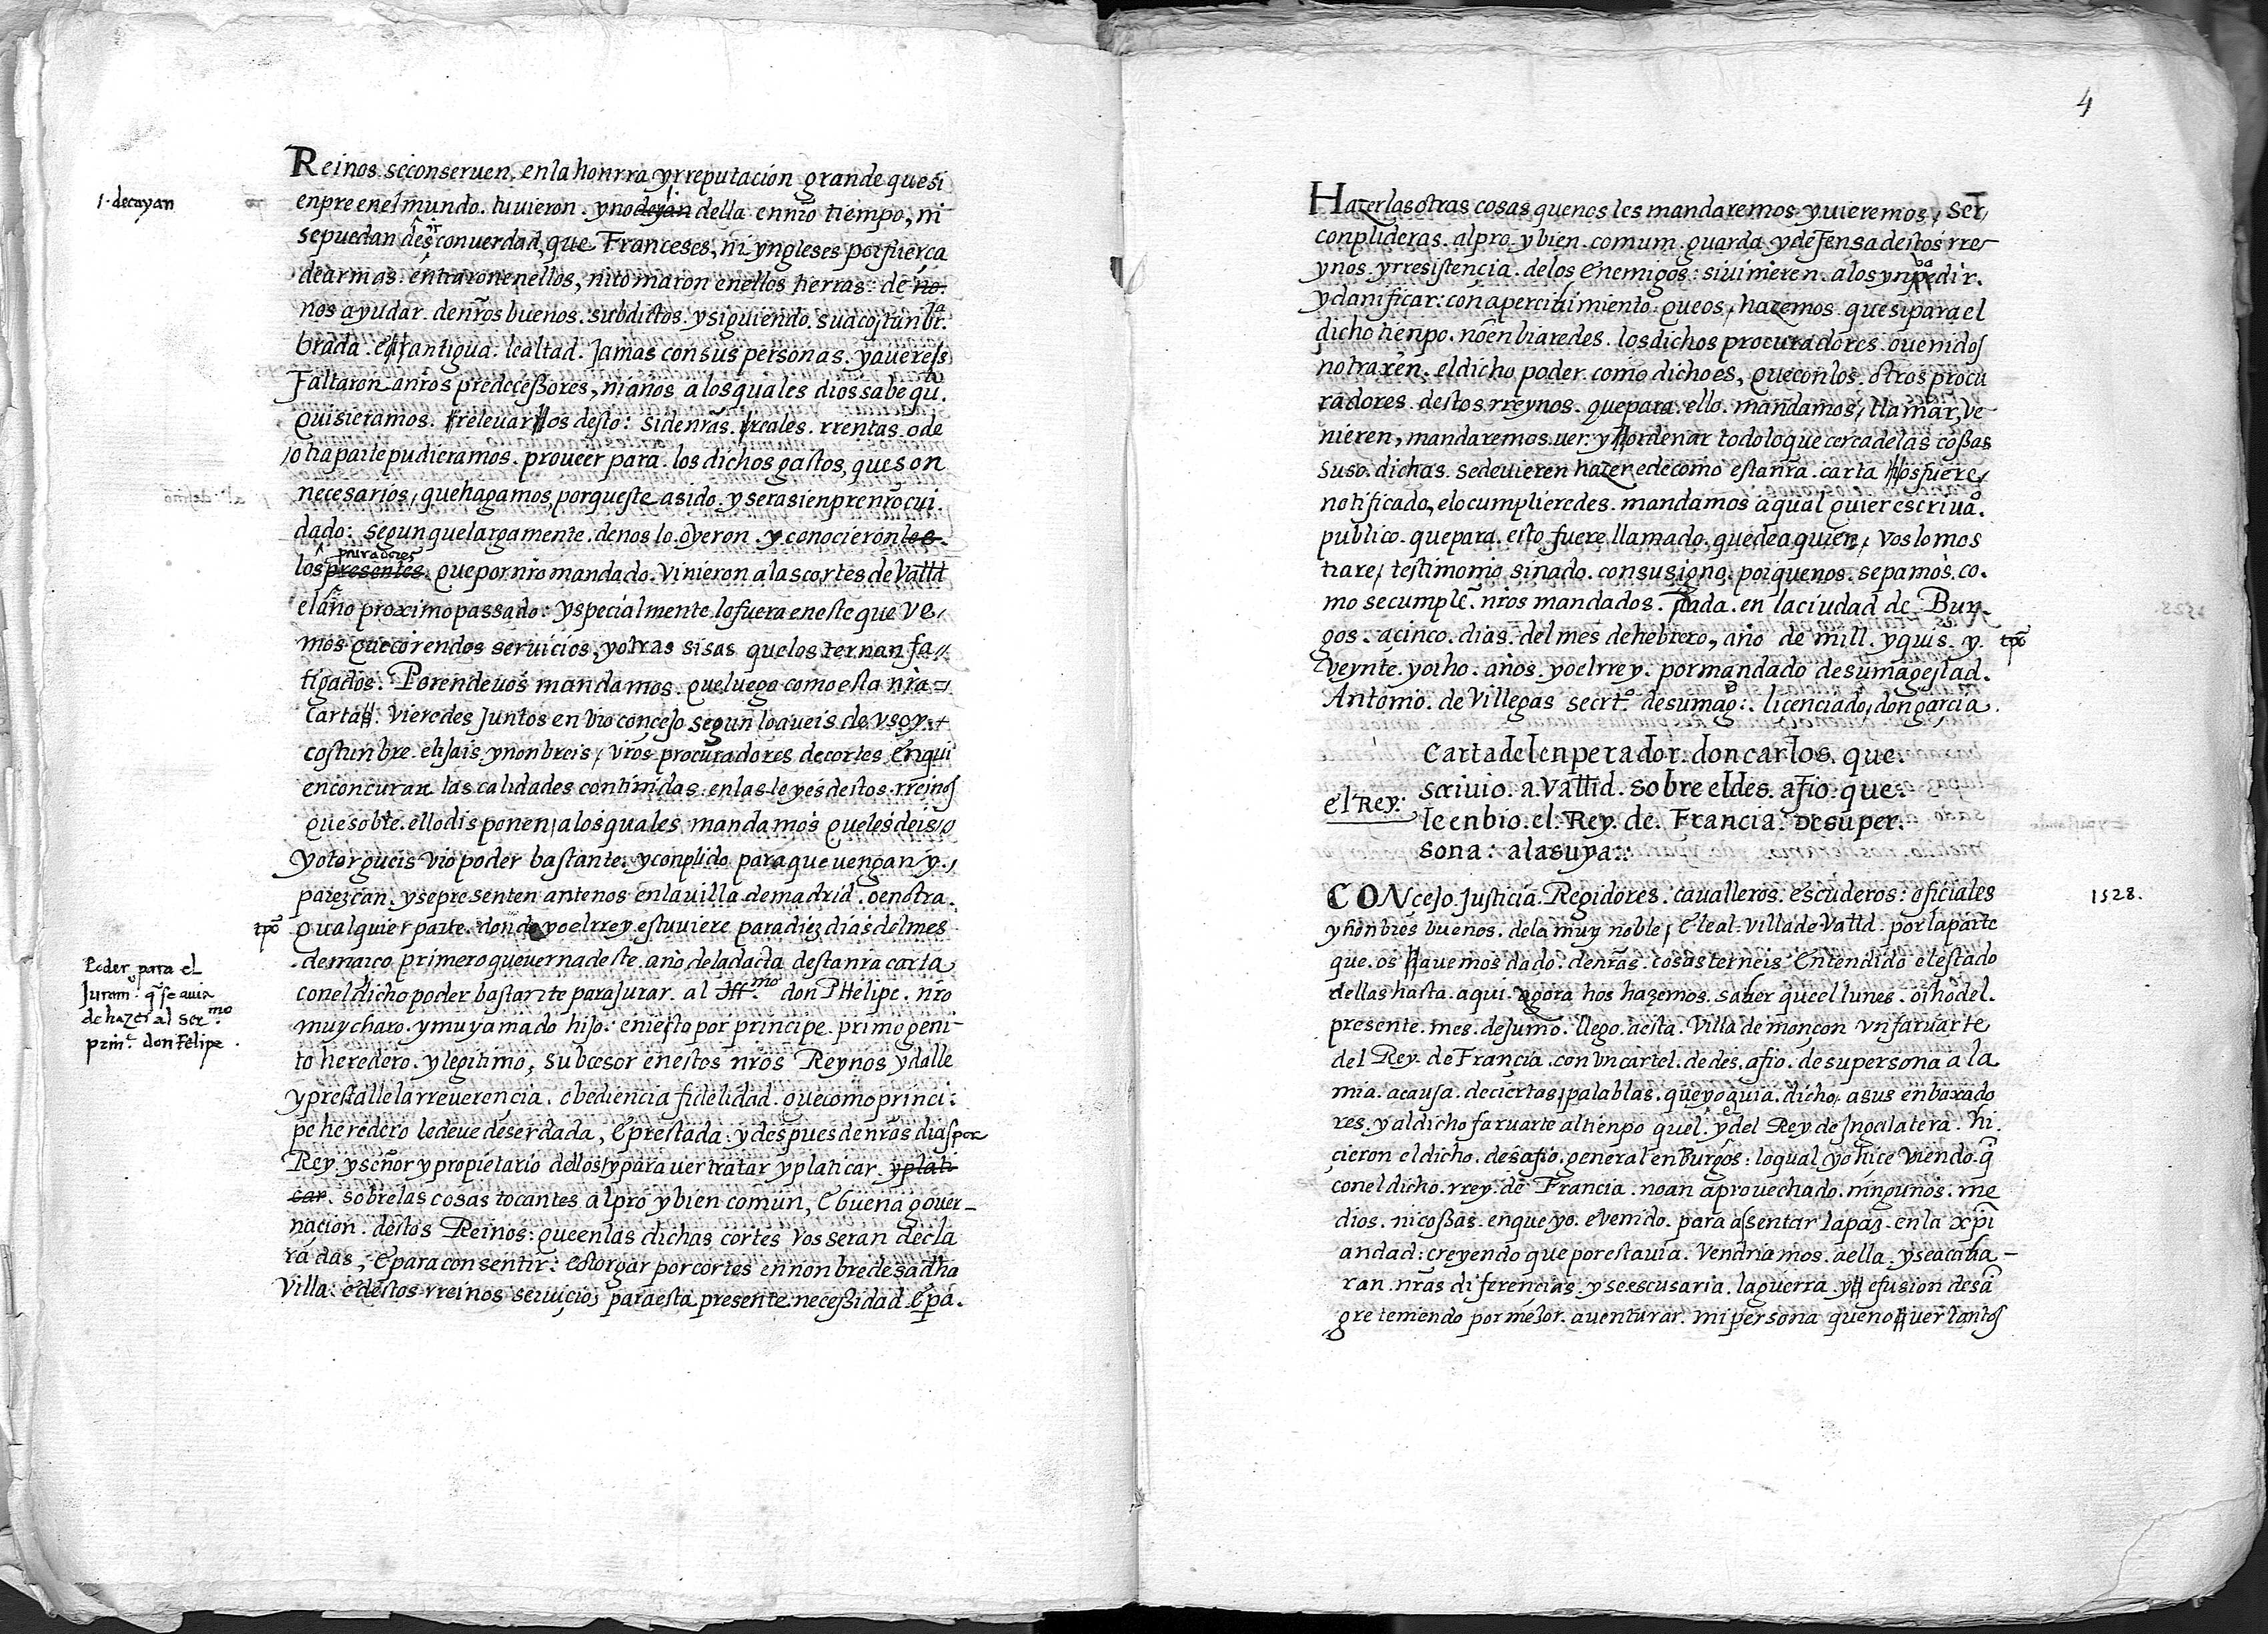 Reinos. se conseruen. en la honrra y rreputacion grande que si
1. decayan
enpre en el mundo. tuvieron. y no deyan della en nro tiempo, ni
se puedan desir con uerdad, que Franceses, ni yngleses por fuerça
de armas. entraron en ellos, ni tomaron en ellos tierras: de no.
nos ayudar. de nros buenos. subditos. y siguiendo. su acostan
brada. e antigua: lealtad. Jamas con sus personas. y aueres
Faltaron a nros predeceßores, ni a nos a los quales dios sabe qu.
Quisieramos. rreleuar los desto: si de nras. rreales. rrentas. o de
otra parte pudieramos. proueer para. los dichos gastos, que son
necesarios, que hagamos, porqueste a sido. y sera sienpre nro cui.
dado: segun que largamente. de nos lo. oyeron. y conocieron los.
procuradores
los presentes. que por nro mandado. vinieron a las cortes de Vallid
el año proximo passado: y special mente. lo fuera en este que ve
mos que corren dos seruicios, y otras sisas que los ternan fa
tigados. Por ende vos mandamos. que luego como esta nra
Carta. vieredes Juntos en vro concejo segun lo aueis de vso y.
costunbre. elijais y nonbreis, vros procuradores de cortes. En qui
en concurran las calidades contenidas. en las leyes destos. rreinos
que sobre. ello disponen, a los quales. mandamos que les deis
y otorgueis vro poder bastante. y conplido para que uengan y.
parezcan. y se presenten ante nos en la uilla de madrid. o en otra.
tpo
qualquier parte. donde yo el rrey estuuiere para diez dias del mes
de março primero que uerna deste. año de la dacta desta nra carta
Poder para el
Juram.to q se auia
de hazer al ser.mo
prin.e don Felipe.
con el dicho poder bastante para jurar. al Ill.mo don PHelipe. nro
muy charo. y muy amado hijo: en iesto por principe. primogeni-
to heredero. y legitimo, subcesor en estos nros Reynos y dalle
y prestalle la rreuerencia. obediencia fidelidad. que como princi:
pe heredero le deue de ser dada, E prestada: y despues de nros dias por
Rey y señor y propietario dellos, y para uer tratar y platicar. y plati
car. sobre las cosas tocantes al pro y bien comun, E buena gouer-
nacion. destos Reinos: que en las dichas cortes vos seran decla
radas, E para consentir: E otorgar por cortes en nonbre de sa dha
Villa: e destos rreinos seruicio, para esta presente. neceßidad E pa.
4
Hazer las otras cosas que nos les mandaremos y uieremos, ser,
conplideras. al pro. y bien. comum. guarda. y defensa destos rre-
ynos. y rresistencia. de los Enemigos: si uinieren. a los ynpedir.
y danificar: con apercibimiento que os, hazemos que si para el
dicho tienpo. no enbiaredes. los dichos procuradores. o uenidos
no traxen. el dicho poder como dicho es, que con los. otros procu
radores. destos rreynos. que para. ello. mandamos, llamar, ve
nieren, mandaremos uer. y ordenar todo lo que cerca de las coßas
suso. dichas. se deuieren hazer e de como esta nra. carta os fuere,
notificado, e lo cumplieredes. mandamos a qual quier escriua.o
publico. que para. esto fuere llamado. que de a quien, vos lo mos
trare, testimonio sinado. con su signo. por que nos. sepamos. co.
mo se cumple. nros mandados. Dada. en la ciudad de Bur-
gos. a cinco. dias. del mes de hebrero, año de mill. y quis. y.
tpo
veynte. y otho. años. yo el rrey. por mandado de su magestad.
Antonio. de Villegas secrt.o de su mag: licenciado, don garcia.
Carta del enperador. don carlos. que.
scriuio. a. Vallid. sobre el des. afio: que:
el Rey:
le enbio. el. Rey. de. Francia. De su per:
sona: a la suya::
CONcejo. Justicia. Regidores. caualleros. escuderos: oficiales
1528.
y honbres buenos. de la muy noble, E leal. villa de Vallid. por la parte
que. os auemos dado. de nras. cosas terneis Entendido el estado
dellas hasta. aqui. agora hos hazemos. saber que el lunes. otho del.
presente. mes. de Junio. llego. a esta. Villa de monçon vn faruarte
del Rey. de Francia. con vn cartel. de des. afio. de su persona a la
mia. a causa. de ciertas, palablas. que yo auia. dicho, a sus enbaxado
res. y al dicho faruarte al tienpo quel. y del Rey de Ingalatera. hi.
cieron el dicho. desafio. general en Burgos: lo qual yo hice viendo. q
con el dicho. rrey. de Francia. no an aprouechado. ningunos. me
dios. ni coßas. en que yo. e venido. para asentar la paz. en la xpi
andad: creyendo que por esta uia. Vendriamos. a ella. y se acaba-
ran. nras diferencias. y se escusaria. la guerra. y efusion de sa
gre teniendo por mejor. auenturar. mi persona que no uer tantos